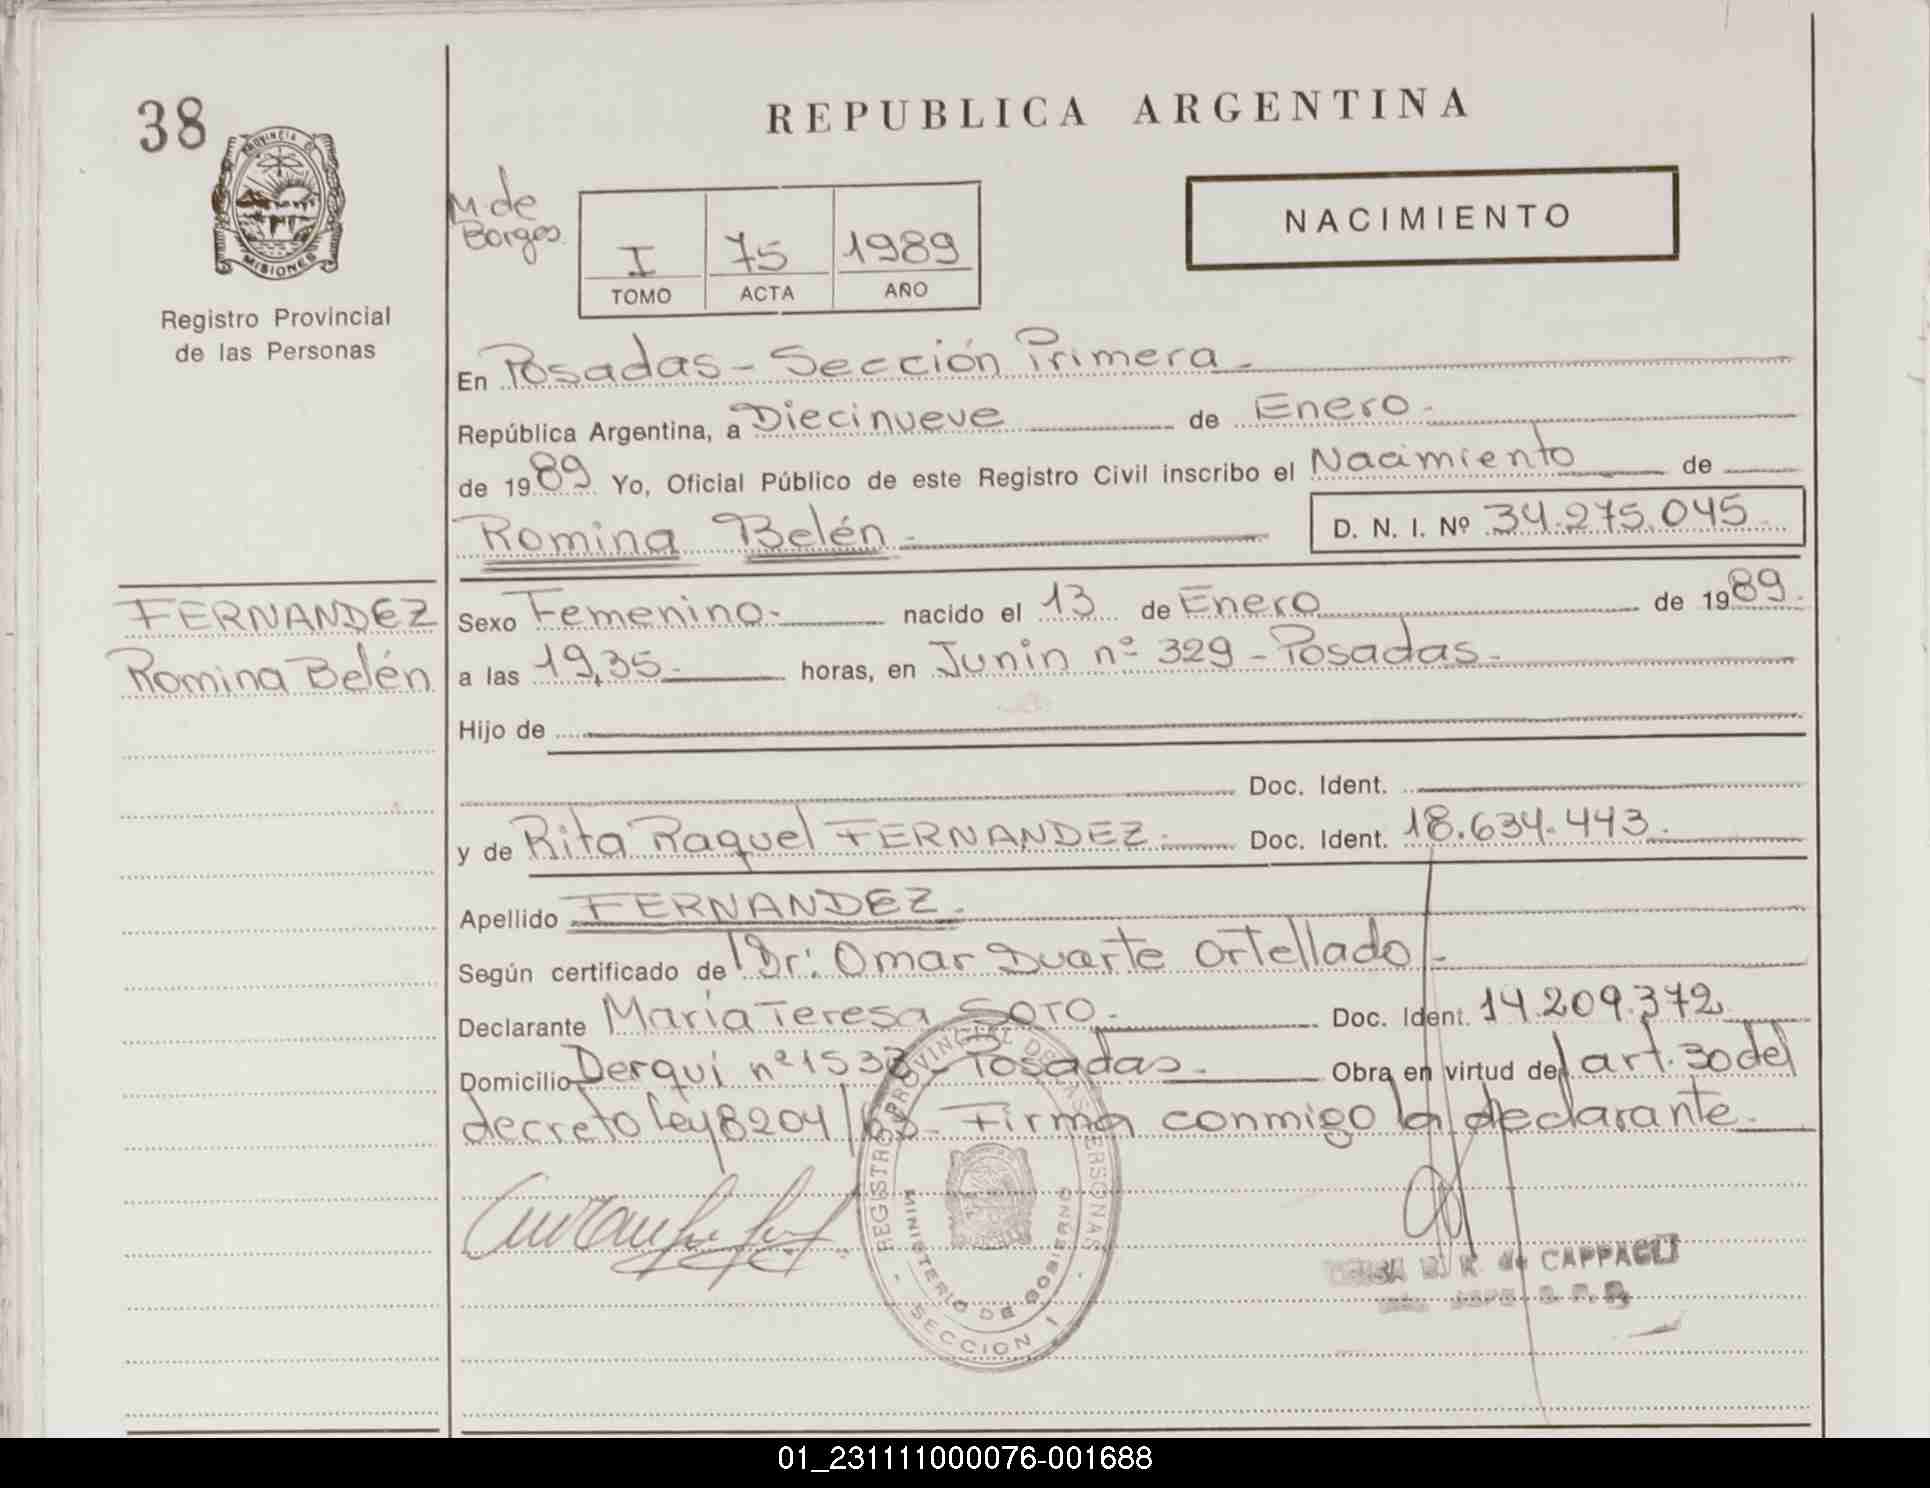 38
PROVINCIA DE
MISIONES
Registro Provincial
de las Personas
REPUBLICA ARGENTINA
M. de
Borges
I 75 1989
TOMO ACTA AÑO
NACIMIENTO
En Posadas - Sección Primera -
República Argentina, a Diecinueve de Enero -
de 1989 Yo, Oficial Público de este Registro Civil inscribo el Nacimiento de
Romina Belén - D. N. I. Nº 34.275.045
FERNANDEZ
Romina Belén
Sexo Femenino - nacido el 13 de Enero de 1989.
a las 19,35 - horas, en Junin nº 329 - Posadas -
Hijo de
Doc. Ident.
y de Rita Raquel FERNANDEZ - Doc. Ident. 18.634.443.
Apellido FERNANDEZ -
Según certificado de Dr: Omar Duarte Ortellado -
Declarante María Teresa SOTO - Doc. Ident. 14.209.372
Domicilio Derqui nº 1533 - Posadas - Obra en virtud del art. 30 del
decreto ley 8204/63 - Firma conmigo la declarante -
REGISTRO PROVINCIAL DE LAS PERSONAS
MINISTERIO DE GOBIERNO
- SECCION I -
de CAPPAGLI
01_231111000076-001688